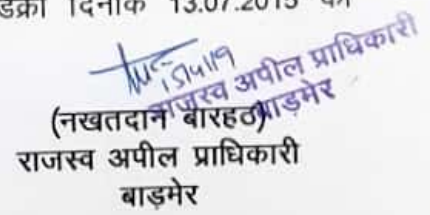 डिक्री दिनांक 13.07.2015 को
15/4/19
राजस्व अपील प्राधिकारी
बाड़मेर
(नखतदान बारहठ)
राजस्व अपील प्राधिकारी
बाड़मेर